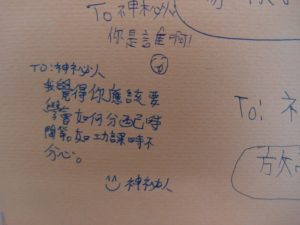 To神秘人
你是誰啊!
To:神秘人
我覺得你應該要
學會如何分配時
間等。如功課時不
分心。
神秘人
To:
放